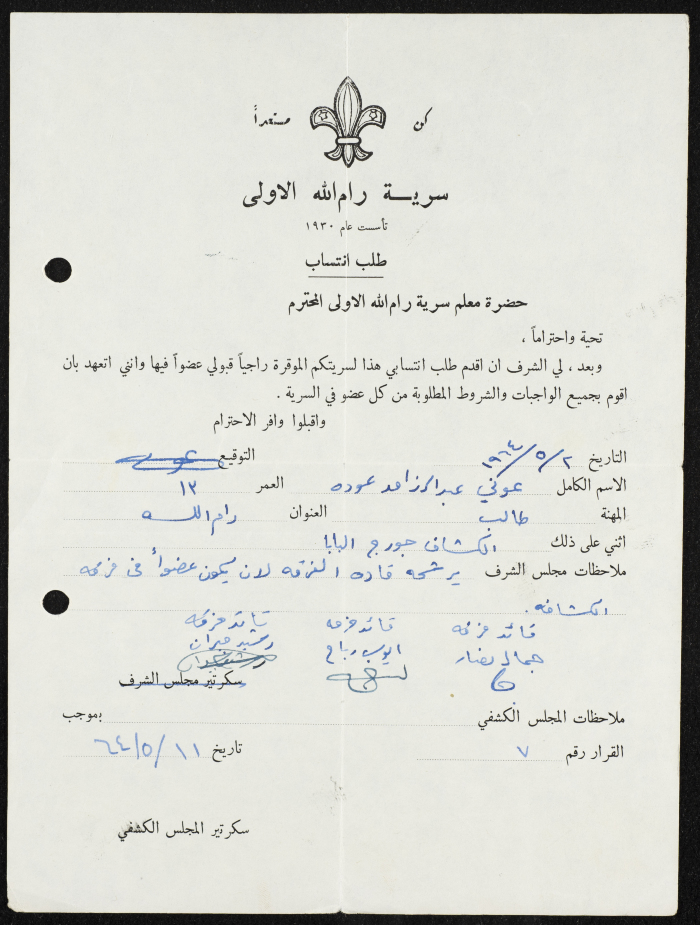 كن مستعداً
سريـــة رام الله الاولى
تأسست عام ١٩٣٠
طلب انتساب
حضرة معلم سرية رام الله الاولى المحترم
تحية واحتراماً ،
وبعد ، لي الشرف ان اقدم طلب انتسابي هذا لسريتكم الموقرة راجياً قبولي عضواً فيها وانني اتعهد بان
اقوم بجميع الواجبات والشروط المطلوبة من كل عضو في السرية .
واقبلوا وافر الاحترام
التاريخ ٢/٥/١٩٦٤ التوقيع
الاسم الكامل عوني عبد الرزاق عوده العمر ١٣
المهنة طالب العنوان رام الله
اثني على ذلك الكشاف جورج البابا
ملاحظات مجلس الشرف يرشحه قاده الفرقه لان يكون عضواً في فرقه
الكشافه .
قائد فرقه قائد فرقه قائد فرقه
جمال نصار ايوب رباح رشيد جبران
سكرتير مجلس الشرف
ملاحظات المجلس الكشفي بموجب
القرار رقم ٧ تاريخ ١١/٥/٦٤
سكرتير المجلس الكشفي